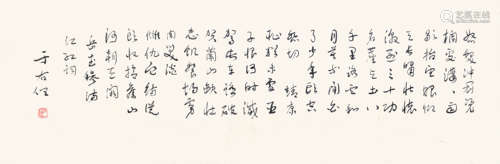 怒髮衝冠憑
欄處瀟瀟雨
歇抬望眼仰
天長嘯壯懷
激烈三十功
名塵與土八
千里路雲和
月莫等閒白
了少年頭空
悲切 靖康
恥猶未雪臣
子恨何時滅
駕長車踏破
賀蘭山缺壯
志飢餐胡虜
肉笑談
仇血待從
頭收拾舊山
河朝天闕
岳武穆滿
江紅詞
于右任